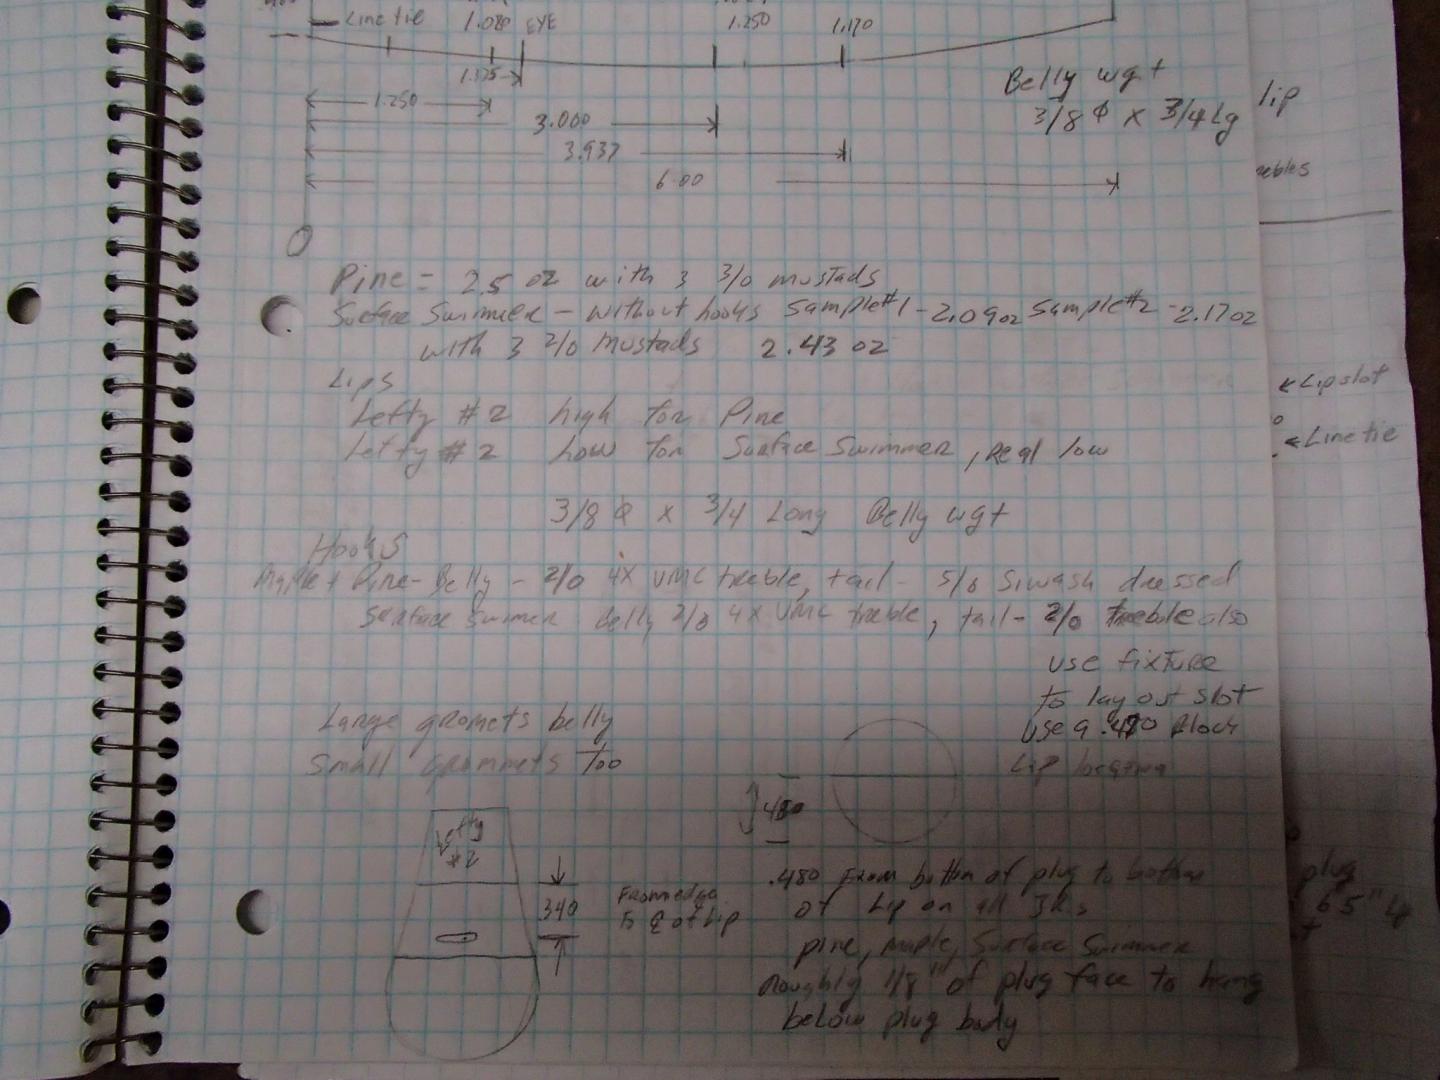 Line tie 1.080 EYE 1.250 1.170
1.375
1.250
3.000
3.937
6.00
Belly wgt
3/8 Φ x 3/4 Lg
lip
Pine = 2.5 oz with 3 3/0 mustads
Surface Swimmer - without hooks Sample #1 - 2.09oz Sample #2 - 2.17oz
with 3 2/0 Mustads 2.43 oz
Lips
Lefty #2 high for Pine
Lefty #2 Low for Surface Swimmer, real low
← Lip slot
← Line tie
3/8 Φ x 3/4 Long Belly wgt
Hooks
Maple + Pine - Belly - 2/0 4X VMC treble, tail - 5/0 Siwash dressed
Surface Swimmer Belly 2/0 4X VMC treble, tail - 2/0 treble also
use fixture
to lay out slot
use a Block
Lip location
Large gromets belly
Small grommets too
.480
Lefty
#2
340
From edge
to ℄ of Lip
.480 From bottom of plug to bottom
of Lip on all JRs
pine, maple, Surface Swimmer
Roughly 1/8" of plug face to hang
below plug body
plug